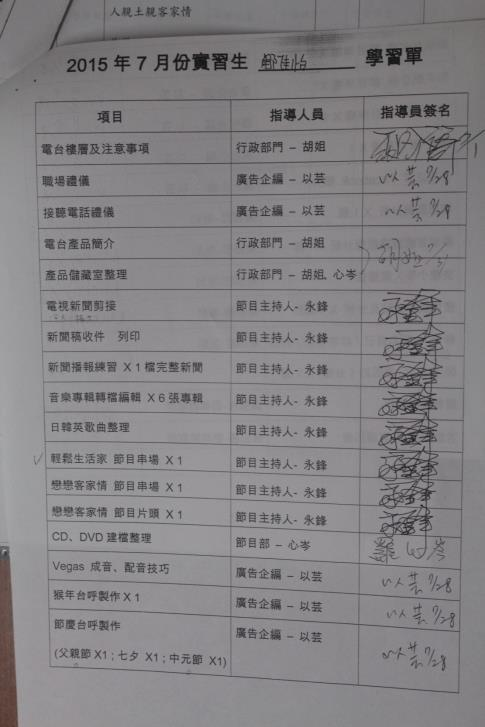 人親土親客家情
2015 年 7 月份實習生 鄭雅怡 學習單
項目 指導人員 指導員簽名
電台樓層及注意事項 行政部門 – 胡姐
職場禮儀 廣告企編 – 以芸 以芸 7/28
接聽電話禮儀 廣告企編 – 以芸 以芸 7/28
電台產品簡介 行政部門 – 胡姐 胡姐 7/31
產品儲藏室整理 行政部門 – 胡姐、心岑
電視新聞剪接 節目主持人- 永鋒
新聞稿收件 列印 節目主持人- 永鋒
新聞播報練習 X 1 檔完整新聞 節目主持人- 永鋒
音樂專輯轉檔編輯 X 6 張專輯 節目主持人- 永鋒
日韓英歌曲整理 節目主持人- 永鋒
輕鬆生活家 節目串場 X 1 節目主持人- 永鋒
戀戀客家情 節目串場 X 1 節目主持人- 永鋒
戀戀客家情 節目片頭 X 1 節目主持人- 永鋒
CD、DVD 建檔整理 節目部 – 心岑
Vegas 成音、配音技巧 廣告企編 – 以芸 以芸 7/28
猴年台呼製作 X 1 廣告企編 – 以芸 以芸 7/28
節慶台呼製作 廣告企編 – 以芸 以芸 7/28
(父親節 X1；七夕 X1；中元節 X1)